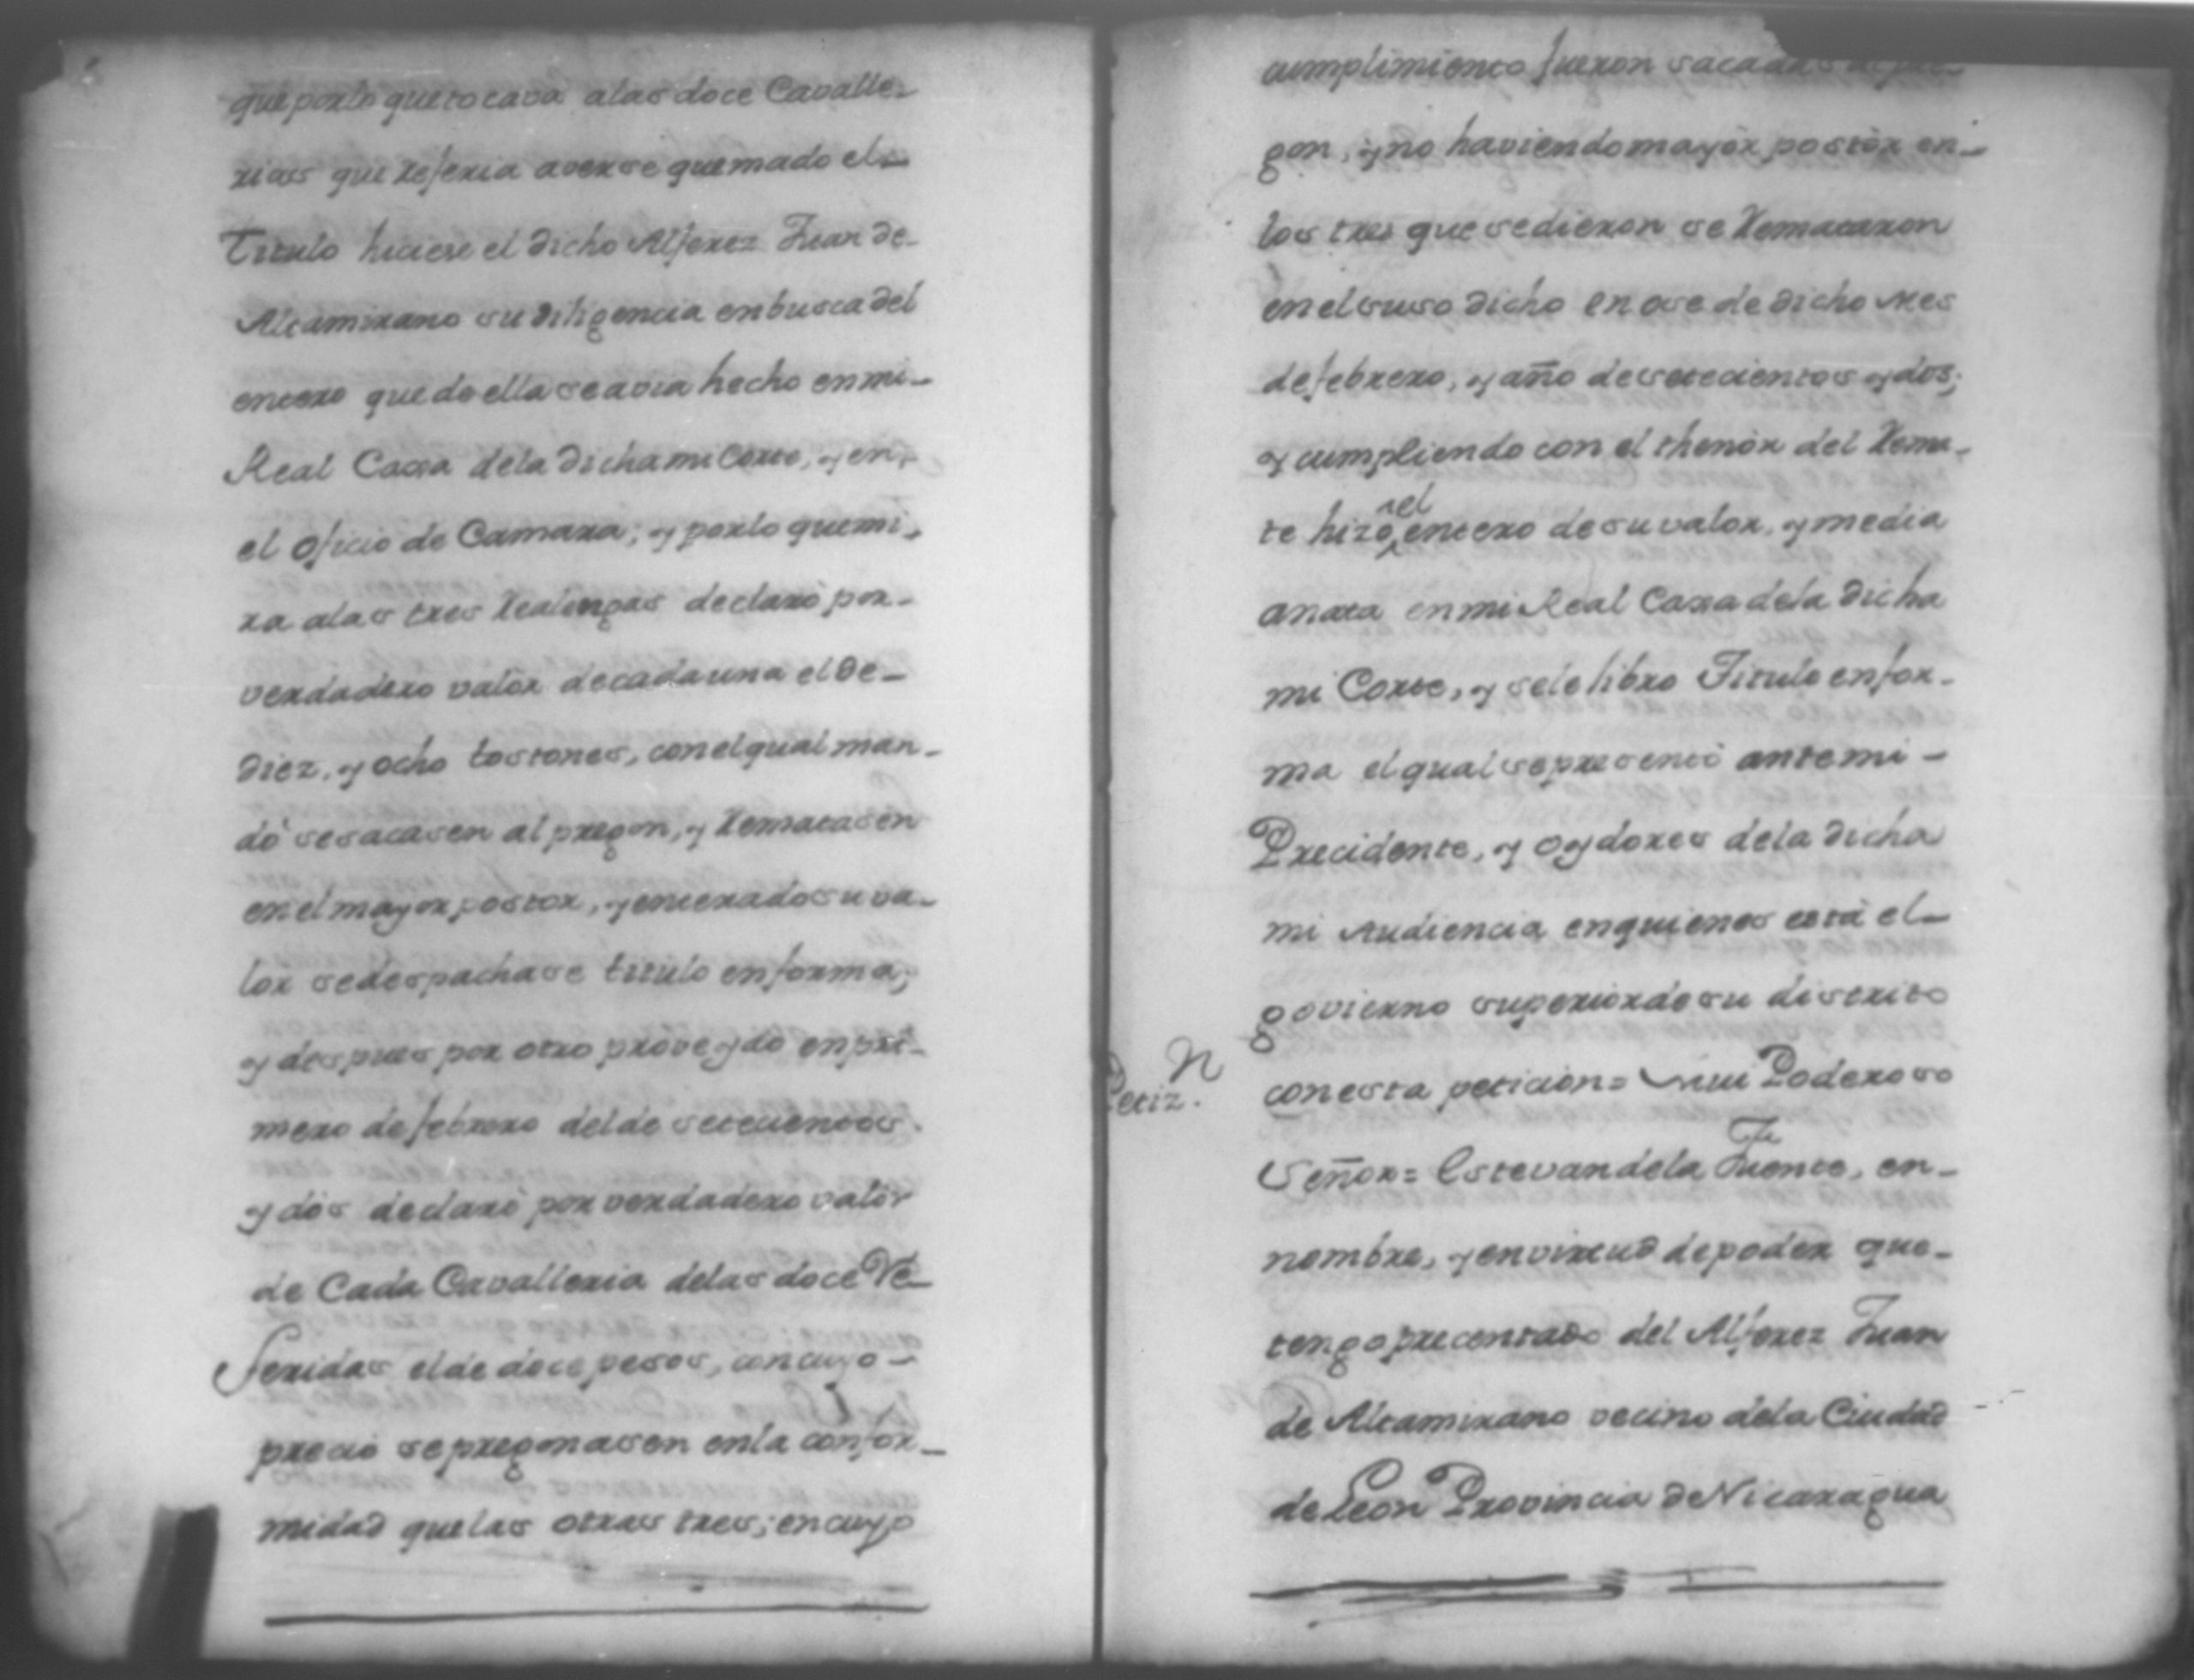 que por lo que tocava a las doce Cavalle-
rias que referia averse quemado el-
Titulo hiciese el dicho Alferez Juan de-
Altamirano su diligencia en busca del
entero que de ella se avia hecho en mi-
Real Caxa de la dicha mi Corte, y en-
el oficio de Camara; y por lo que mi-
ra a las tres Realengas declarò por-
verdadero valòr de cada una el de-
diez, y ocho tostones, con el qual man-
dò se sacasen al pregon, y Rematasen
en el mayor postor, y enterado su va-
lor se despachase titulo en forma;
y despues por otro proveydo en pri-
mero de febrero del de setecientos
y dòs declarò por verdadero valòr
de Cada Cavalleria de las doce Re-
feridas el de doce pesos, con cuyo-
precio se pregonasen en la confor-
midad que las otras tres; en cuyo
cumplimiento fueron sacadas
gon, y no haviendo mayòr postòr en-
los tres que se dieron se Remataron
en el suso dicho en ose de dicho Mes
de febrero, y año de setecientos y dos;
y cumpliendo con el thenòr del Rema-
te hizo el entero de su valor, y media
anata en mi Real Caxa de la dicha
mi Corte, y se le libro Titulo en for-
ma el qual se presentò ante mi-
Precidente, y oydores de la dicha
mi Audiencia en quienes està el-
govierno superior de su distrito
Petiz.n
con esta peticion= Mui Poderoso
Señor= Estevan de la Fuente, en-
nombre, y en virtud de poder que-
tengo precentado del Alferez Juan
de Altamirano vecino de la Ciudad
de Leon Provincia de Nicaragua